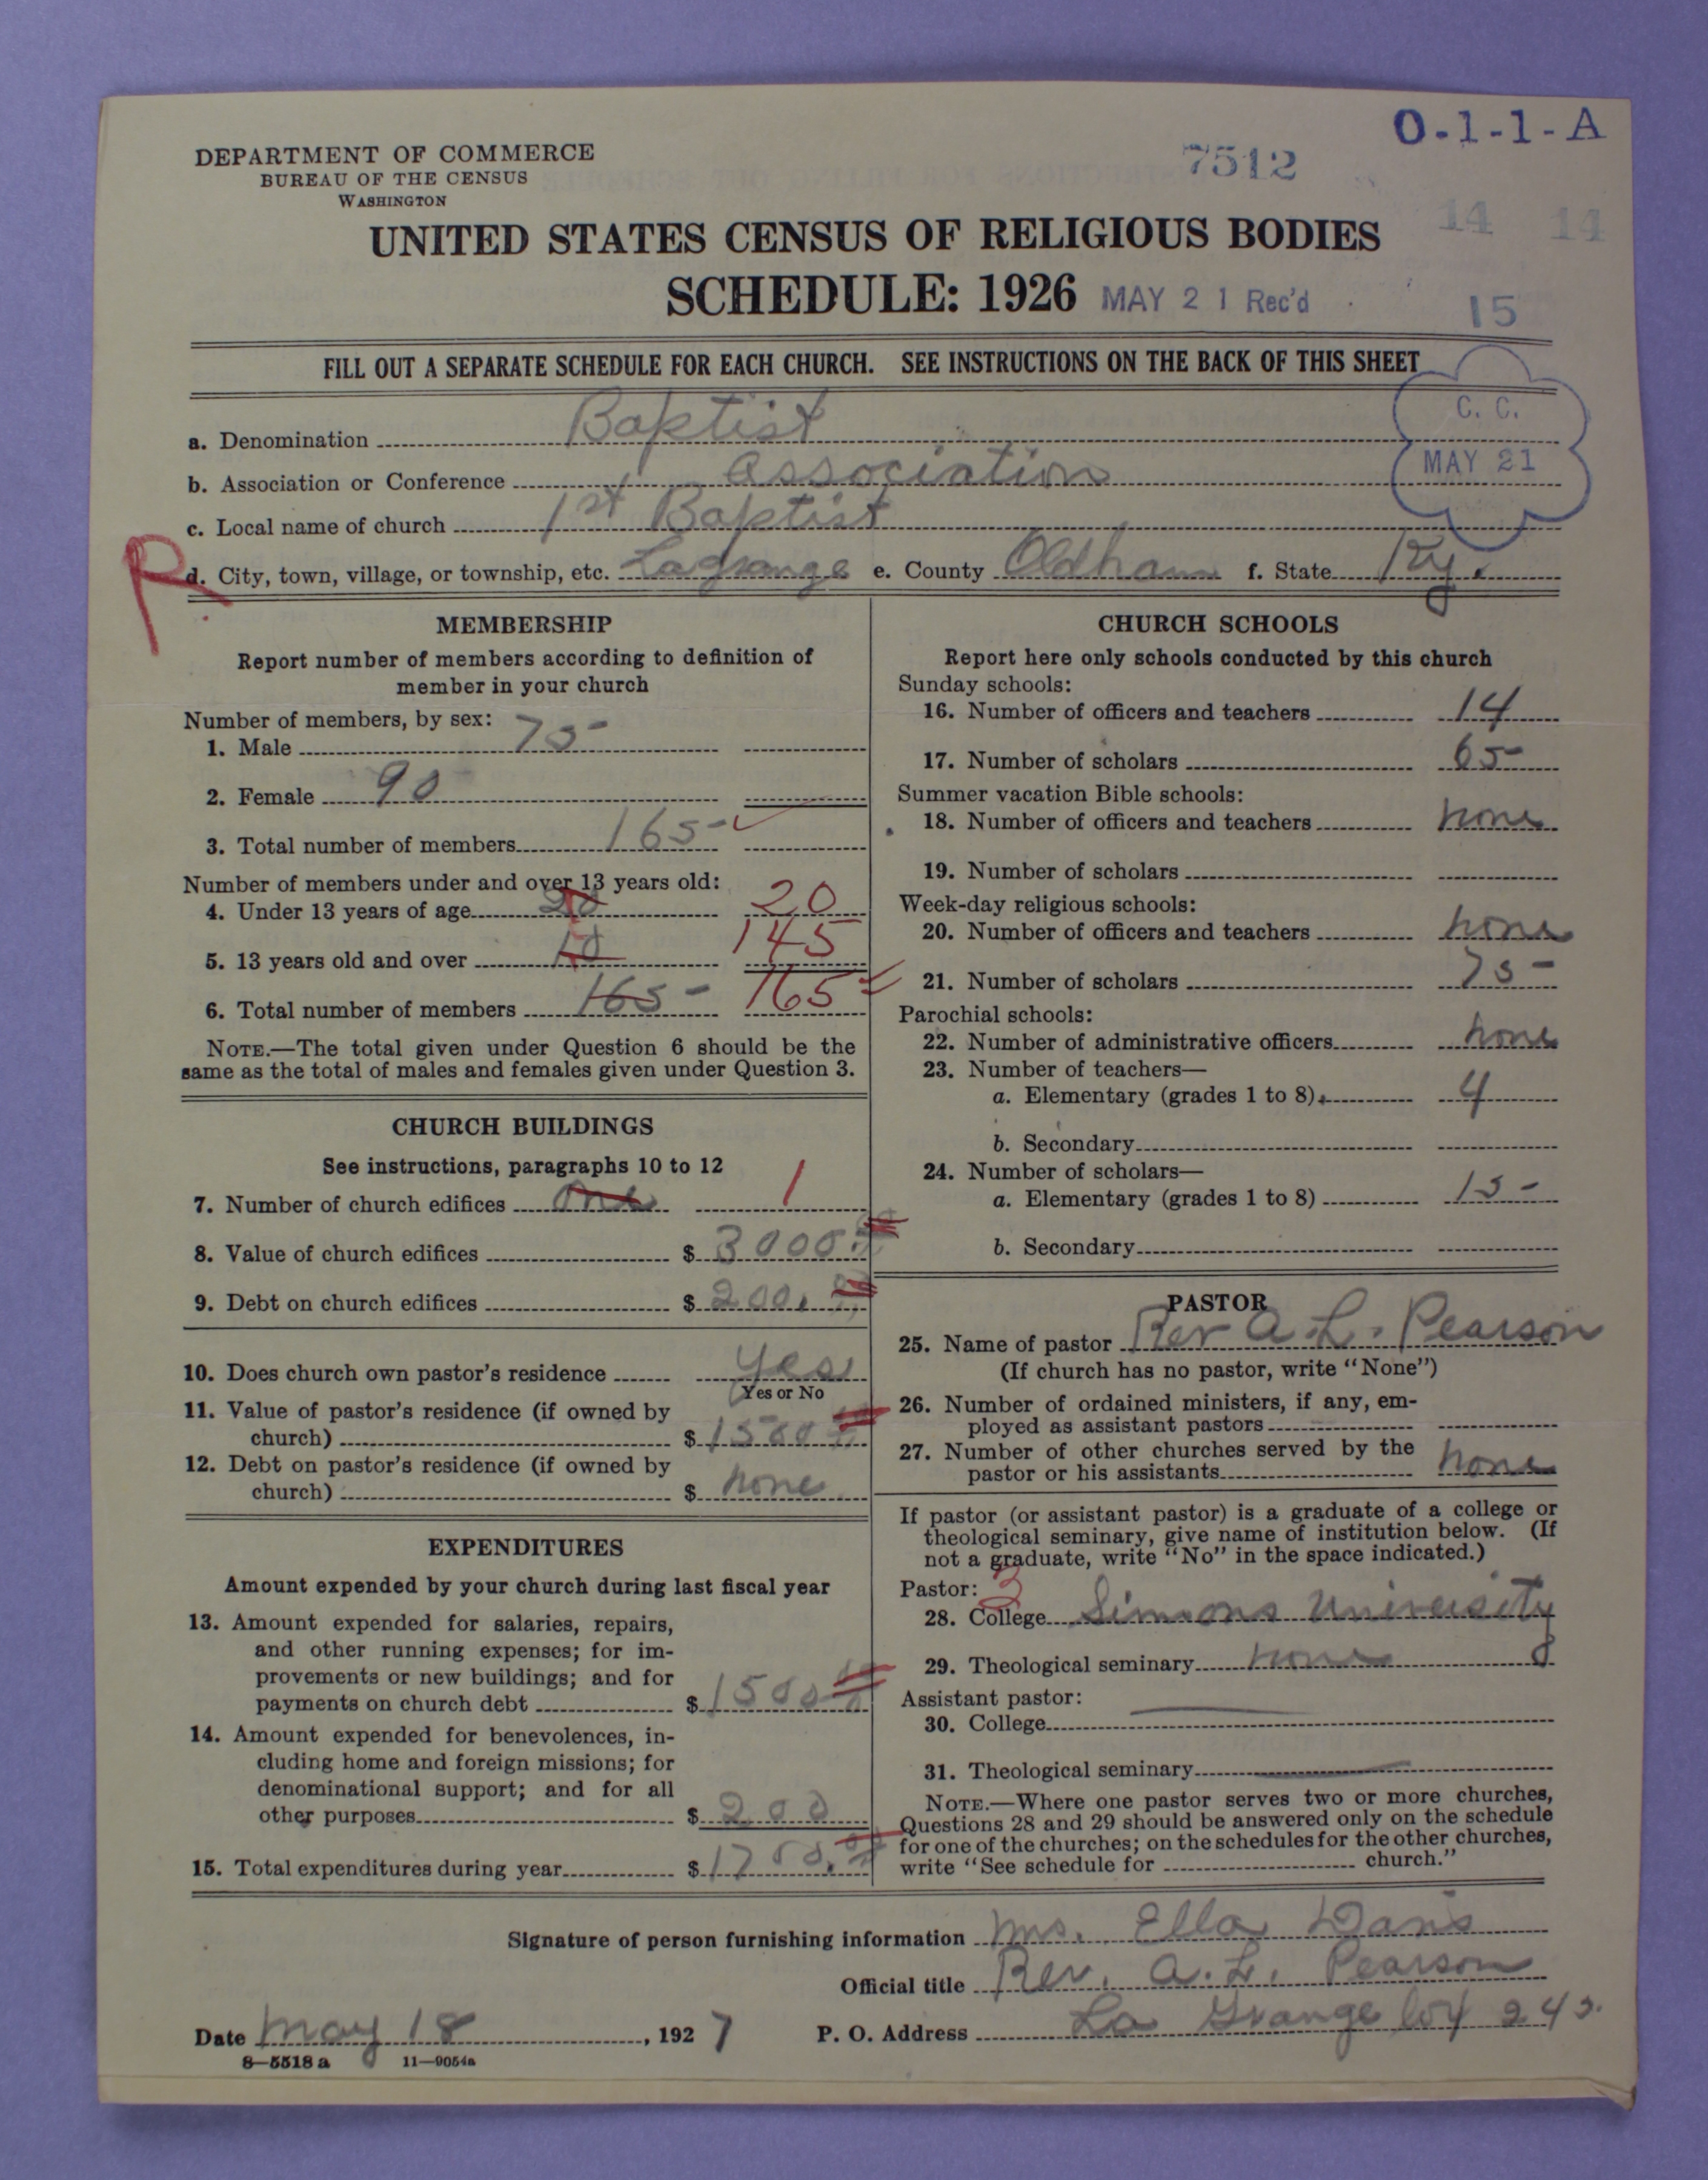 O-1-1-A
DEPARTMENT OF COMMERCE
BUREAU OF THE CENSUS
WASHINGTON
7512
14 14
UNITED STATES CENSUS OF RELIGIOUS BODIES
SCHEDULE: 1926 MAY 21 Rec'd
15
FILL OUT A SEPARATE SCHEDULE FOR EACH CHURCH. SEE INSTRUCTIONS ON THE BACK OF THIS SHEET
C. C.
MAY 21
a. Denomination Baptist
b. Association or Conference Association
c. Local name of church 1st Baptist
R.
d. City, town, village, or township, etc. Lagrange e. County Oldham f. State Ky.
MEMBERSHIP
Report number of members according to definition of
member in your church
Number of members, by sex:
1. Male 75
2. Female 90
3. Total number of members 165
Number of members under and over 13 years old:
4. Under 13 years of age 20 20
5. 13 years old and over 10 145
6. Total number of members 165 165
NOTE.—The total given under Question 6 should be the
same as the total of males and females given under Question 3.
CHURCH BUILDINGS
See instructions, paragraphs 10 to 12
7. Number of church edifices One 1
8. Value of church edifices $ 3000.
9. Debt on church edifices $ 200.
10. Does church own pastor's residence Yes
Yes or No
11. Value of pastor's residence (if owned by
church) $ 1500
12. Debt on pastor's residence (if owned by
church) $ none
EXPENDITURES
Amount expended by your church during last fiscal year
13. Amount expended for salaries, repairs,
and other running expenses; for im-
provements or new buildings; and for
payments on church debt $ 1500
14. Amount expended for benevolences, in-
cluding home and foreign missions; for
denominational support; and for all
other purposes $ 200
15. Total expenditures during year $ 1700.
CHURCH SCHOOLS
Report here only schools conducted by this church
Sunday schools:
16. Number of officers and teachers 14
17. Number of scholars 65
Summer vacation Bible schools:
18. Number of officers and teachers none
19. Number of scholars
Week-day religious schools:
20. Number of officers and teachers none
21. Number of scholars 75
Parochial schools:
22. Number of administrative officers none
23. Number of teachers—
a. Elementary (grades 1 to 8) 4
b. Secondary
24. Number of scholars—
a. Elementary (grades 1 to 8) 15
b. Secondary
PASTOR
25. Name of pastor Rev A. L. Pearson
(If church has no pastor, write "None")
26. Number of ordained ministers, if any, em-
ployed as assistant pastors
27. Number of other churches served by the
pastor or his assistants none
If pastor (or assistant pastor) is a graduate of a college or
theological seminary, give name of institution below. (If
not a graduate, write "No" in the space indicated.)
Pastor: 3
28. College Simmons University
29. Theological seminary none
Assistant pastor:
30. College
31. Theological seminary
NOTE.—Where one pastor serves two or more churches,
Questions 28 and 29 should be answered only on the schedule
for one of the churches; on the schedules for the other churches,
write "See schedule for church."
Signature of person furnishing information Mrs. Ella Davis
Official title Rev. A. L. Pearson
Date May 18, 1927 P. O. Address La Grange
8—5518 a 11—9054a